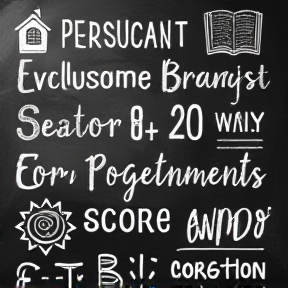 PERSUCANT
Evcllusome Branyst
Seator 8+ 20 WAIY
Eorı Pogetnments
score
CORGHON